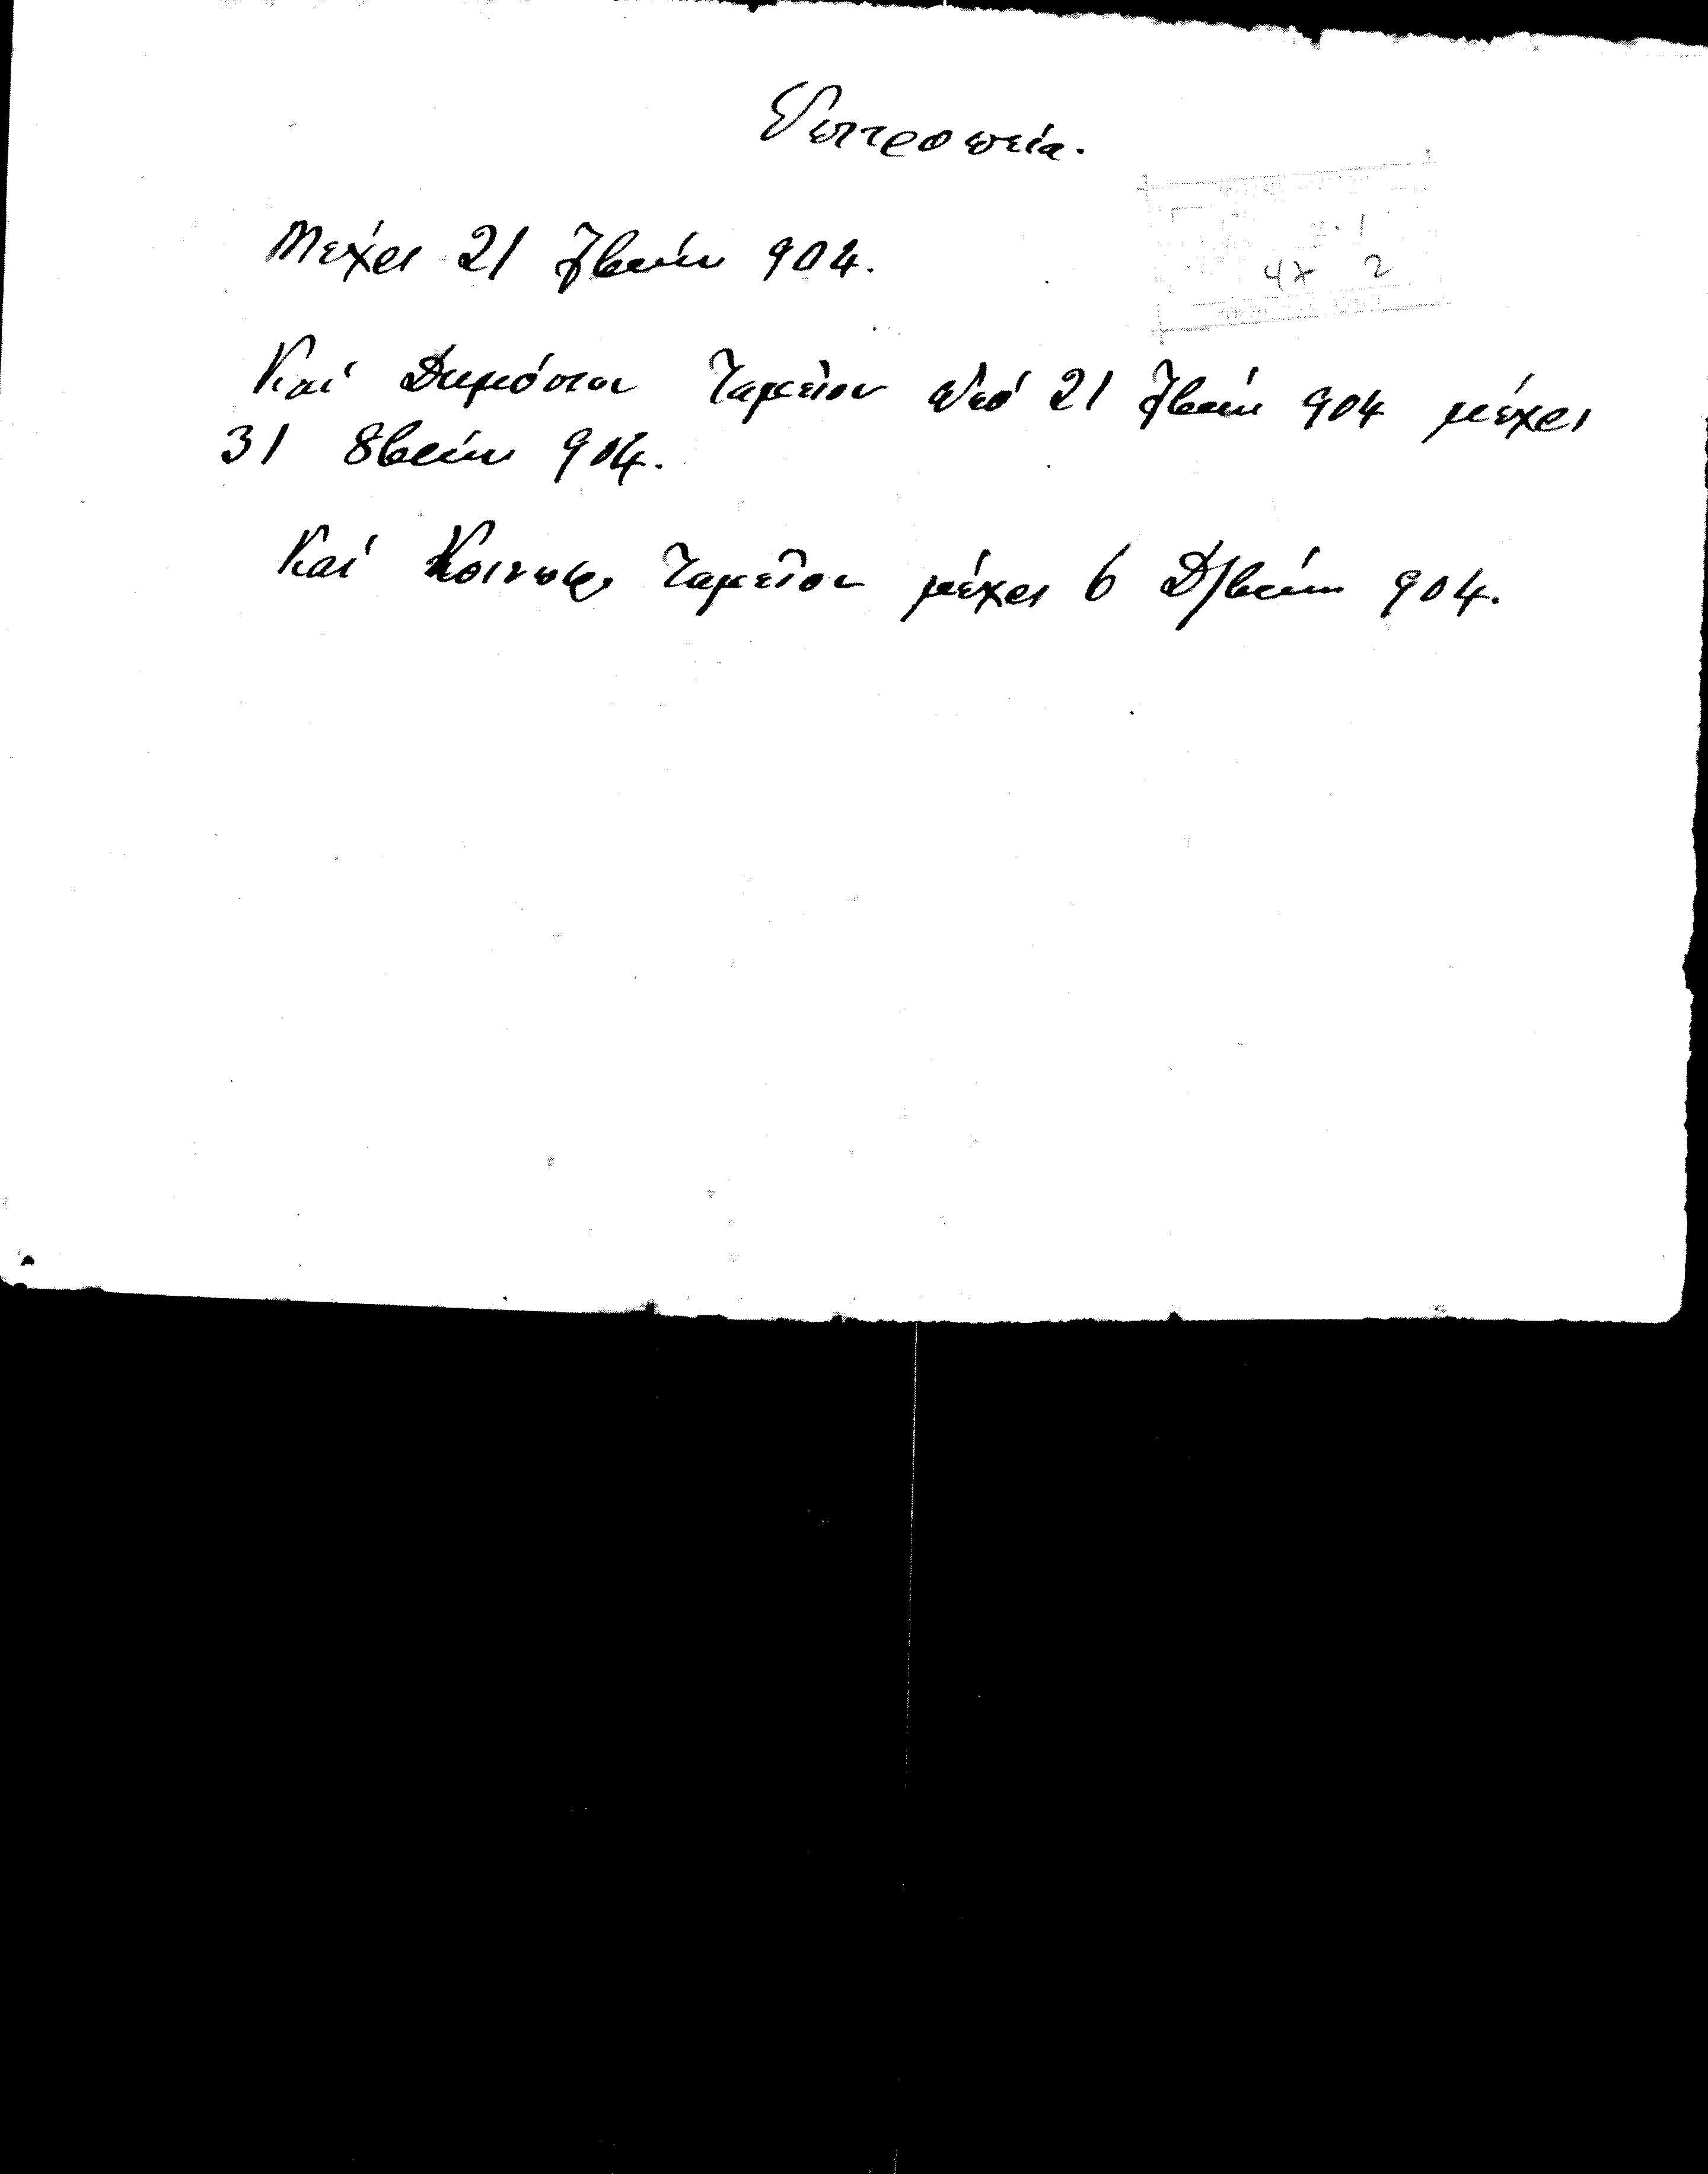 Ἐπιτροπεία.
Μέχρι 21 7βρίου 904.
Καὶ Δημόσιον Ταμεῖον ἀπὸ 21 7βρίου 904 μέχρι
31 8βρίου 904.
Καὶ Κοινωφ. Ταμεῖον μέχρι 6 Δ/βρίου 904.